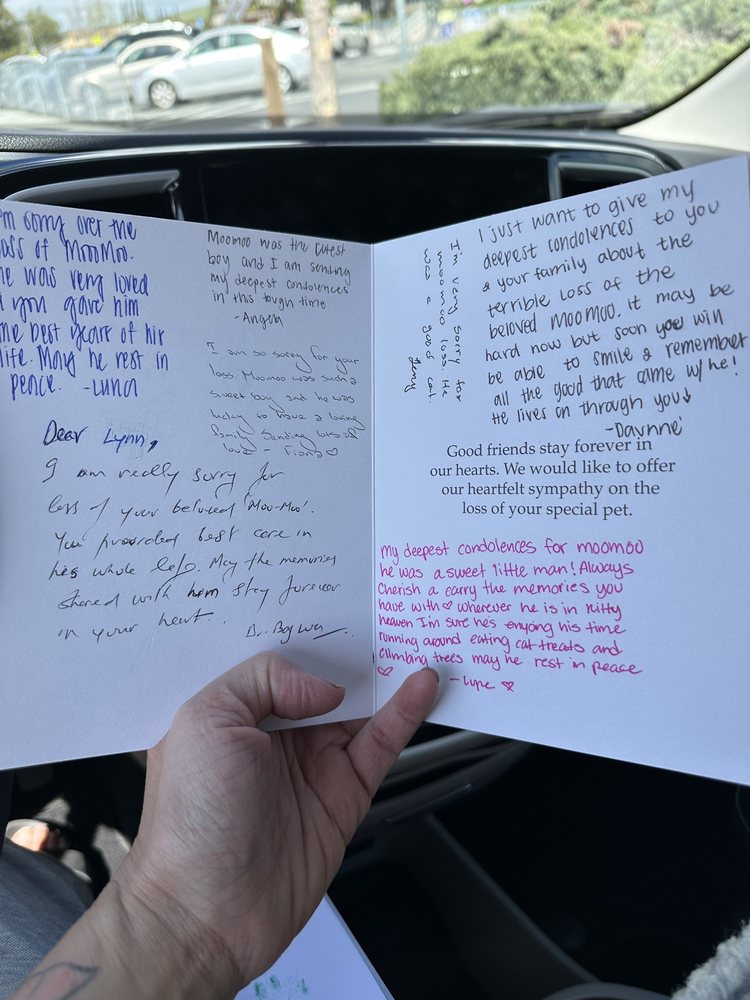 'm sorry over the
loss of MooMoo.
he was very loved
d you gave him
he best years of his
life. May he rest in
peace. -Luna
Moomoo was the cutest
boy and I am sending
my deepest condolences
in this tough time
-Angela
I am so sorry for your
loss. Moomoo was such a
sweet boy and he was
lucky to have a loving
family. Sending lots of
love - Fiona♡
Dear Lynn,
I am really sorry for
loss of your beloved 'Moo-Moo'.
You provided best care in
his whole life. May the memories
shared with him stay forever
in your heart.
Dr.
I'm very sorry for
moomoo loss. He
was a good cat.
I just want to give my
deepest condolences to you
& your family about the
terrible loss of the
beloved MooMoo. it may be
hard now but soon you will
be able to smile & remember
all the good that came w/ he!
He lives on through you↓
-Davnne'
Good friends stay forever in
our hearts. We would like to offer
our heartfelt sympathy on the
loss of your special pet.
my deepest condolences for moomoo
he was a sweet little man! Always
cherish & carry the memories you
have with ♡ wherever he is in kitty
heaven I'm sure he's enyoing his time
running around eating cat treats and
climbing trees may he rest in peace
♡ - Lupe ♡